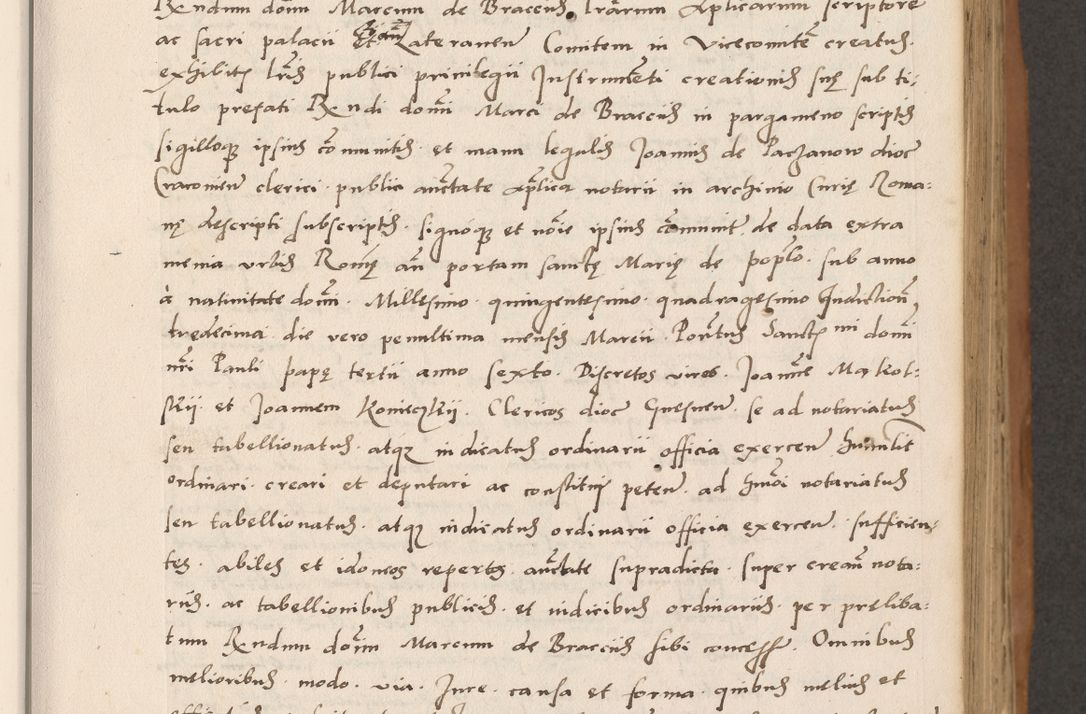 Rndum domi Marcum de Braceus. Lrarum Aplicarum scriptore
ac sacri palacii et Lateranen Comitem in Vicecomite creatus.
exhibitis lris publici privilegii Instrumenti creationis suę sub ti:
tulo prefati Rndi domi Marci de Braceiis in pargameno scriptis
sigilloque ipsius comunitis. et manu legalis Joannis de Paczanow dioc
Cracovien clerici. public auctate aplica notarii in archivio Curię Roma:
nę descripti subscriptis. signoque et noie ipsius comunit. de data extra
menia urbis Romę an portam sanctę Marię de poplo. sub anno
à nativitate domi. Millesimo. quingentesimo. quadragesimo Indiction
tredecima. die vero penultima mensis Marcii. Pontus Sanctismi domi
nri Pauli papę tertii anno sexto. Discretos viros. Joanne Mąkol:
skii. et Joannem Konieczkii. Clericos dioc Gnesnen. se ad notariatus
seu tabellionatus. atque iudicatus ordinarii officia exercen humilit
ordinari. creari et deputari ac constitui peten. ad hmoi notariatus
seu tabellionatus. atque iudicatus ordinarii officia exercen. sufficien:
tes. abiles et idoneos repertos. auctate supradicta. super crean nota:
riis. ac tabellionibus publicis. et iudicibus ordinariis. per pręliba:
tum Rndum domi Marcum de Braceiis sibi concess. Omnibus
melioribus. modo. via. Jure. causa et forma. quibus melius et